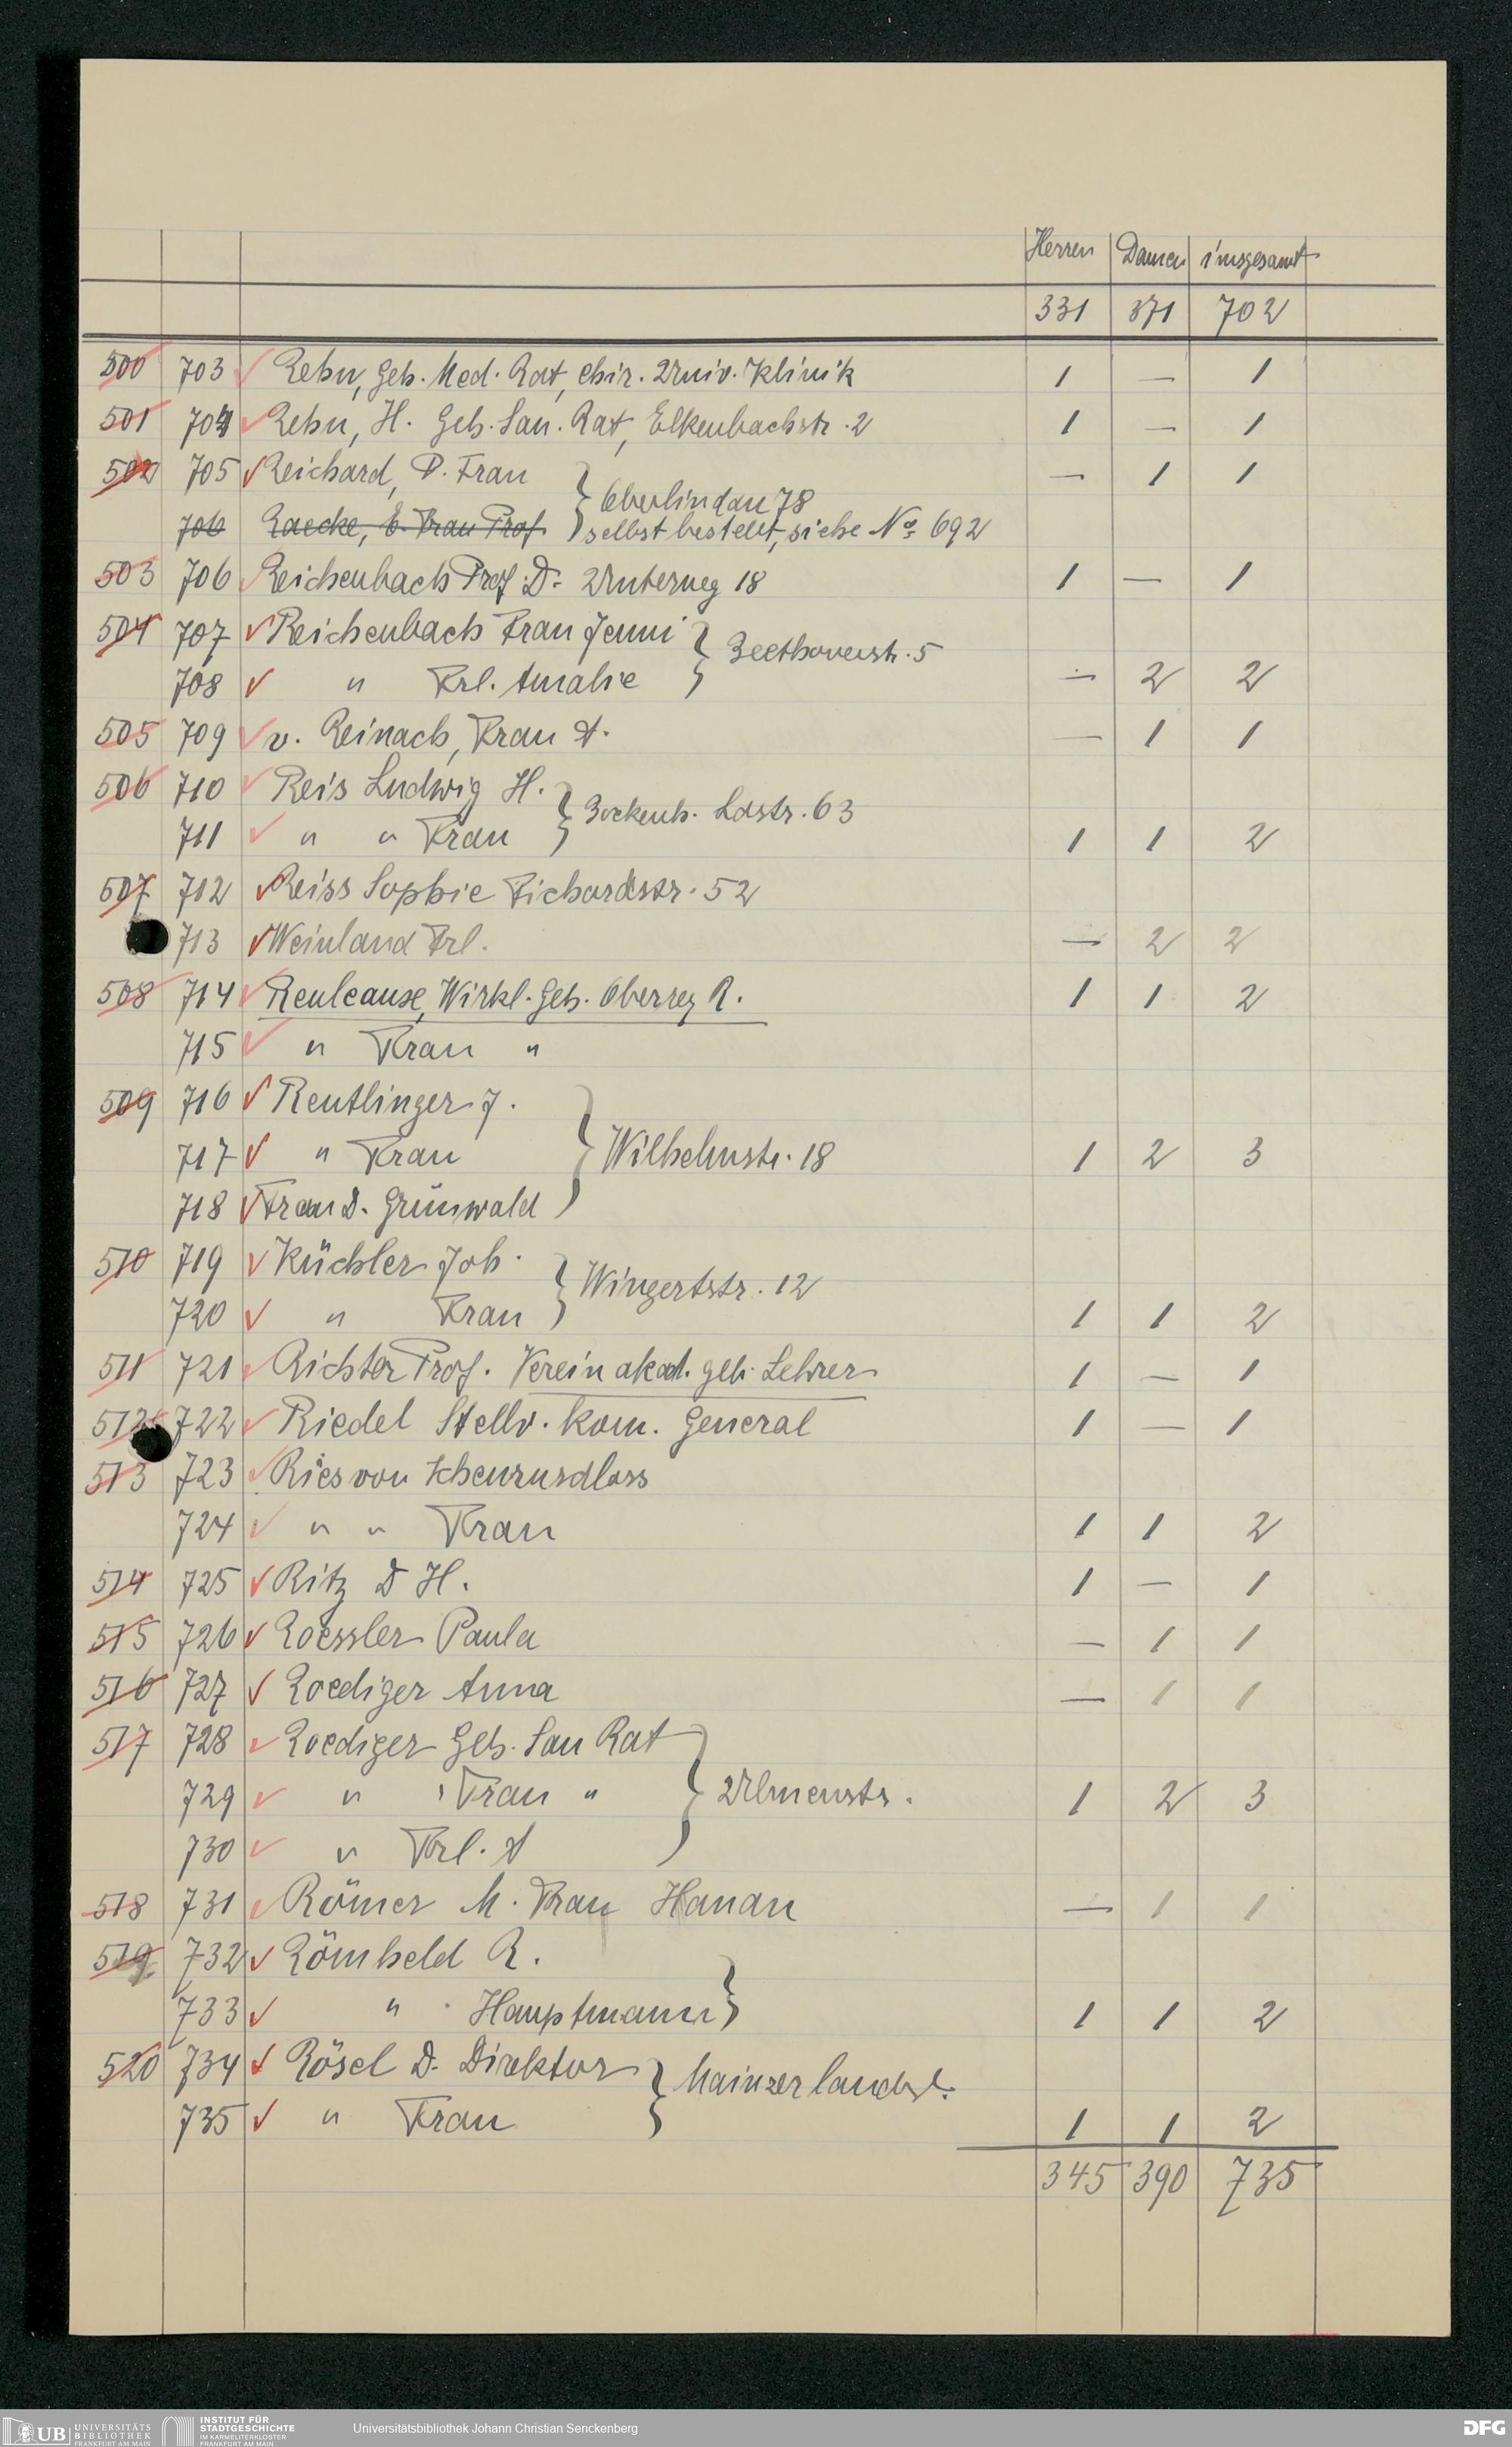 Herren Damen insgesamt
331 371 702
500 703 Rehn, Geh. Med. Rat, chir. Univ. Klinik 1 — 1
501 704 Rehn, H. Geh. San. Rat, Elkenbachstr. 2 1 — 1
502 705 Reichard, D. Frau — 1 1
Oberlindau 78
706 Raecke, E. Frau Prof. selbst bestellt, siehe No 692
503 706 Reichenbach Prof. D. Unterweg 18 1 — 1
504 707 Reichenbach Frau Jenni
Beethovenstr. 5
708 " Frl. Amalie — 2 2
505 709 v. Reinach, Frau A. — 1 1
506 710 Reis Ludwig H.
Bockenh. Ldstr. 63
711 " " Frau 1 1 2
507 712 Reiss Sophie Fichardstr. 52
713 Weinland Frl. — 2 2
508 714 Reuleause, Wirkl. Geh. Oberreg R. 1 1 2
715 " Frau "
509 716 Reutlinger J.
717 " Frau Wilhelmstr. 18 1 2 3
718 Frau D. Grünwald
510 719 Küchler Joh.
Wingertstr. 12
720 " Frau 1 1 2
511 721 Richter Prof. Verein akad. geb. Lehrer 1 — 1
512 722 Riedel Stellv. kom. General 1 — 1
513 723 Ries von
724 " " Frau 1 1 2
514 725 Ritz D H. 1 — 1
515 726 Roessler Paula — 1 1
516 727 Roediger Anna — 1 1
517 728 Roediger Geh. San Rat
729 " Frau " Ulmenstr. 1 2 3
730 " Frl. A
518 731 Römer M. Frau Hanau — 1 1
519 732 Römheld R.
733 " Hauptmann 1 1 2
520 734 Rösel D. Direktor
Mainzerlandst.
735 " Frau 1 1 2
345 390 735
UB UNIVERSITÄTS
BIBLIOTHEK
FRANKFURT AM MAIN
INSTITUT FÜR
STADTGESCHICHTE
IM KARMELITERKLOSTER
FRANKFURT AM MAIN
Universitätsbibliothek Johann Christian Senckenberg
DFG